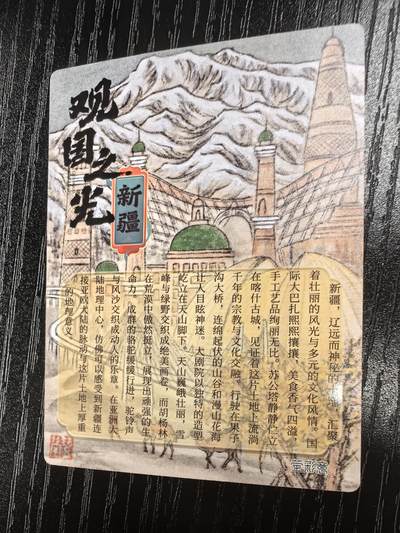 观国之光
新疆
新疆,辽远而神秘的 汇聚
着壮丽的风光与多元的文化风情。国
际大巴扎熙熙攘攘,美食香气四溢,
手工艺品绚丽无比。苏公塔静静伫立
在喀什古城,见证着这片土地上流淌
千年的宗教与文化交融。行驶在果子
沟大桥,连绵起伏的山谷和漫山花海
让人目眩神迷。大剧院以独特的造型
屹立在天山脚下,天山巍峨壮丽,雪
峰与绿野交织成绝美画卷,而胡杨林
在荒漠中傲然挺立,展现出顽强的生
命力,成群的骆驼缓缓行进,驼铃声
与风沙交织成动人的乐章。在亚洲大
陆地理中心,仿佛可以感受到新疆连
接亚欧大陆的脉动与这片土地上厚重
的地理意义。